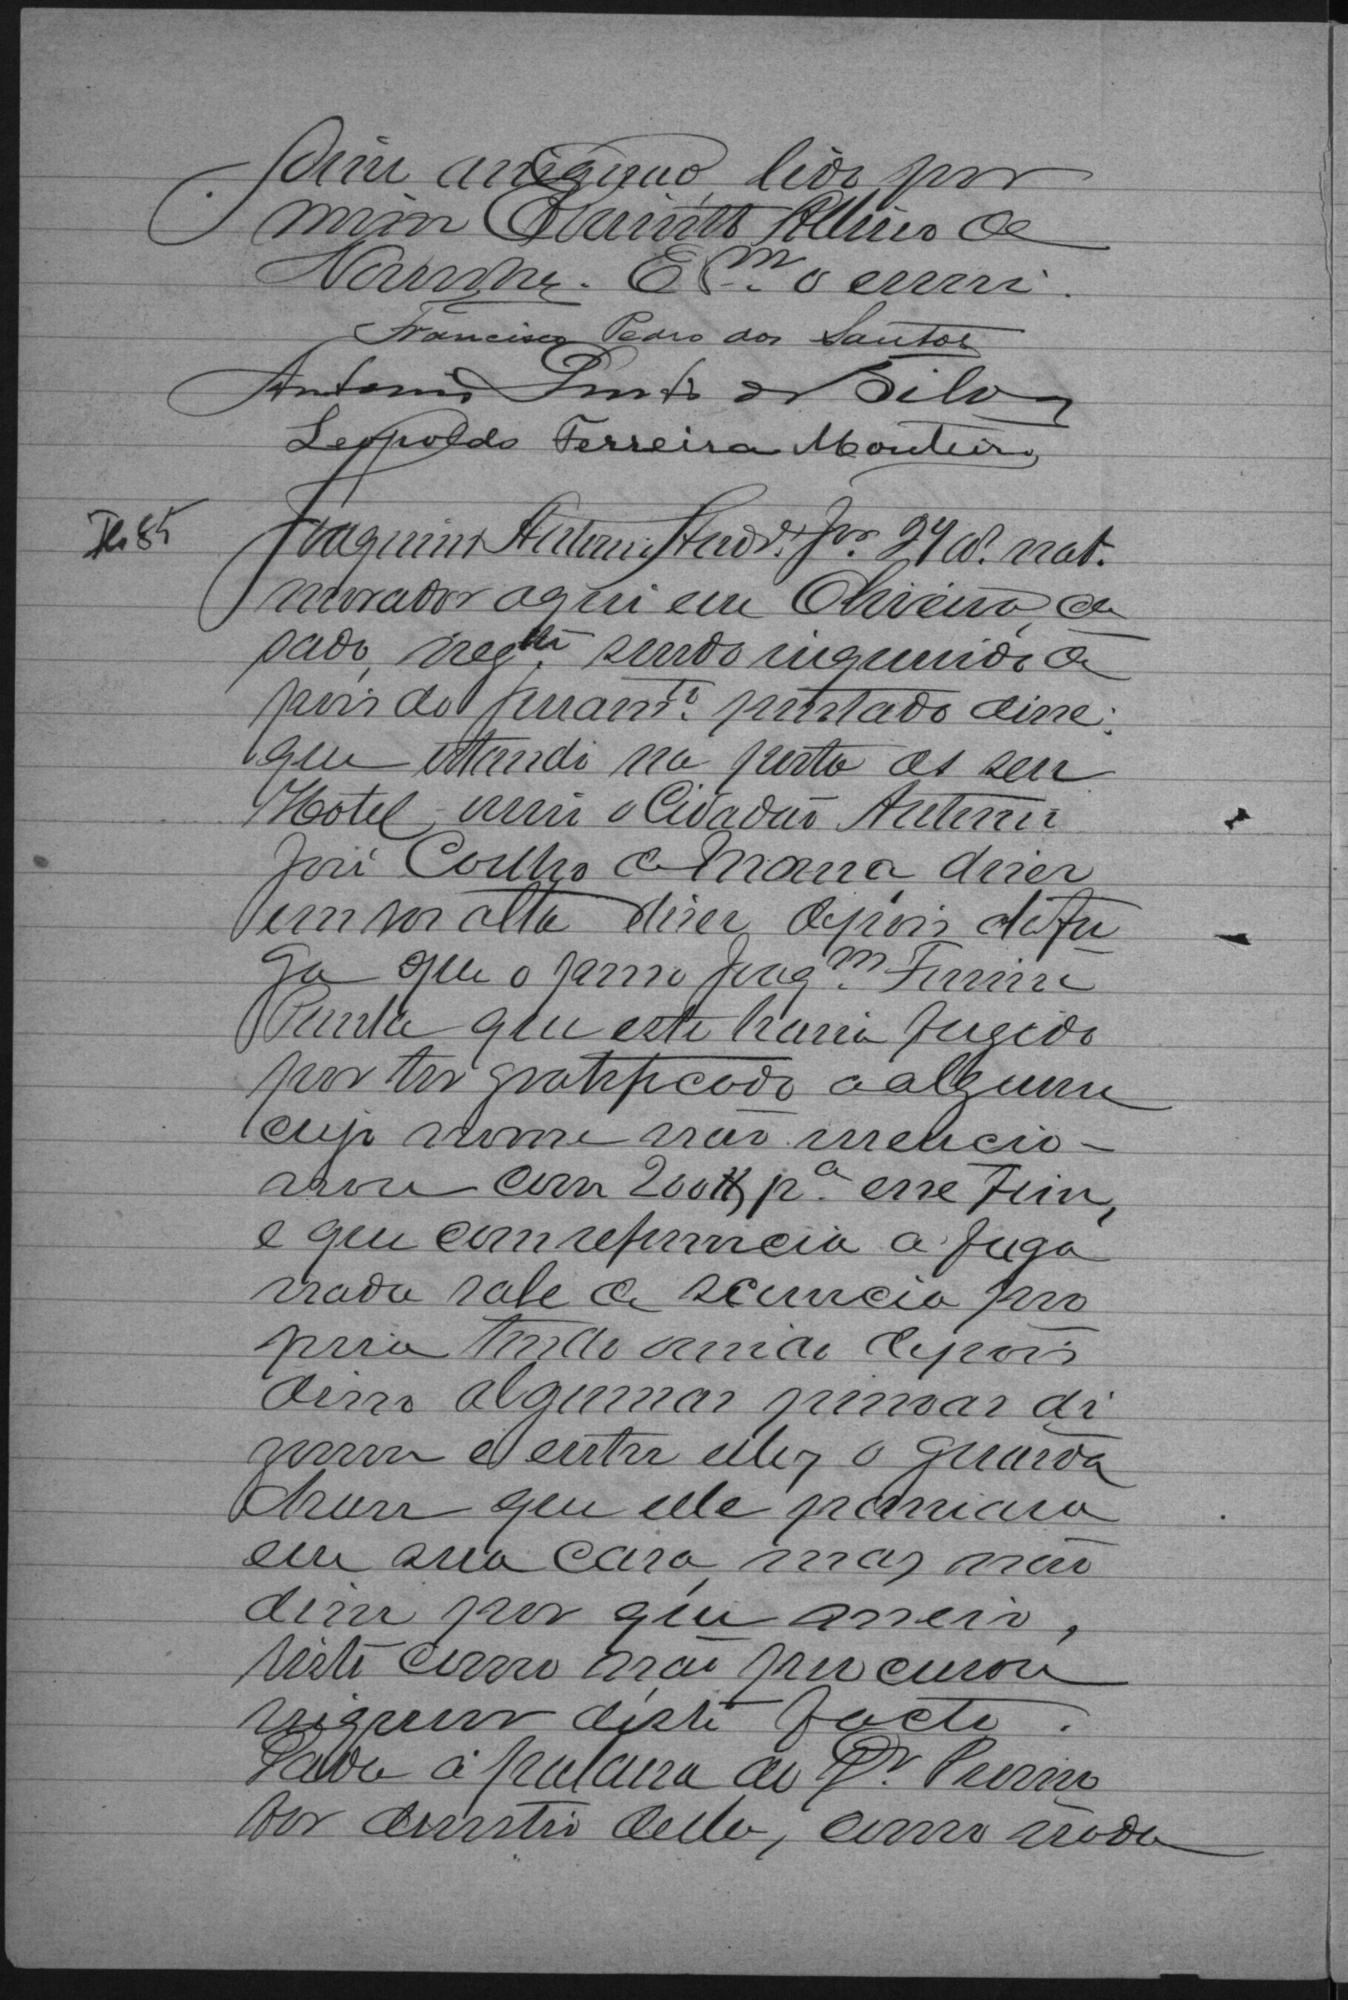 sim assignão, lido por
mim Evaristo de
Noronha. Esm. o escrevi.
Francisco Pedro dos Santos
Antonio Pinto da Silva
Leopoldo Ferreira Monteiro
Joaquim Antonio 29 a. nat.
morador aqui em Oliveira, ca
sado, neg.te sendo inquirido de
pois do juram.to prestado disse:
que estando na porta de seu
Hotel, ouvio o Cidadão Antonio
José Coelho de Moura, diser
em vos alta diser, depois da fu
ga que o preso Joaq.m Ferreira
que este havia fugido
por ter gratificado a alguem
cujo nome não mencio-
nou com 200$ p.a esse fim,
e que com referencia a fuga
nada sabe de sciencia pro
pria tendo ouvido depois
disso algumas pessoas di
serem e entre elles o guarda
que elle
em sua casa, mas não
disse por que anseio,
visto como não procurou
deste facto.
Dada a palavra ao Dr. Promo
tor desistio della, como nada